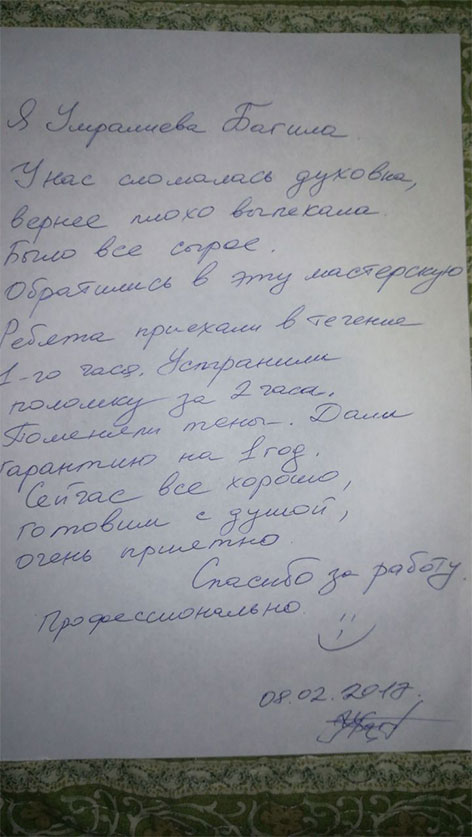 Я Умралиева Батила
У нас сломалась духовка,
вернее плохо выпекала.
Было все сырое.
Обратились в эту мастерскую
Ребята приехали в течение
1-го часа. Устранили
поломку за 2 часа.
Поменяли тены. Дали
гарантию на 1 год.
Сейчас все хорошо,
готовим с душой,
очень приятно.
Спасибо за работу.
Профессионально.
08.02.2017.